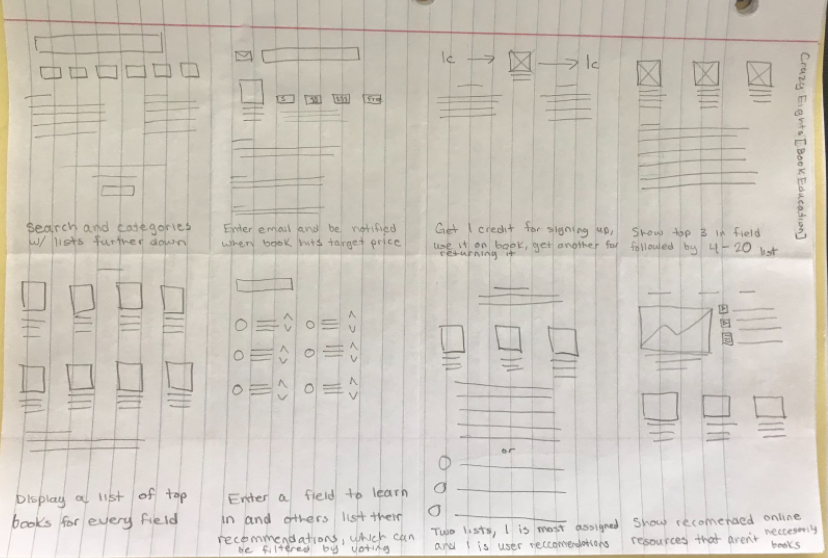 Crazy Eights [Book Education]
1c → → 1c
Search and categories
w/ lists further down
Enter email and be notified
when book hits target price
Get 1 credit for signing up,
use it on book, get another for
returning it
Show top 3 in field
followed by 4-20 list
or
Display a list of top
books for every field
Enter a field to learn
in and others list their
recommendations, which can
be filtered by voting
Two lists, 1 is most assigned
and 1 is user reccomendations
Show recomended online
resources that arent neccessarily
books